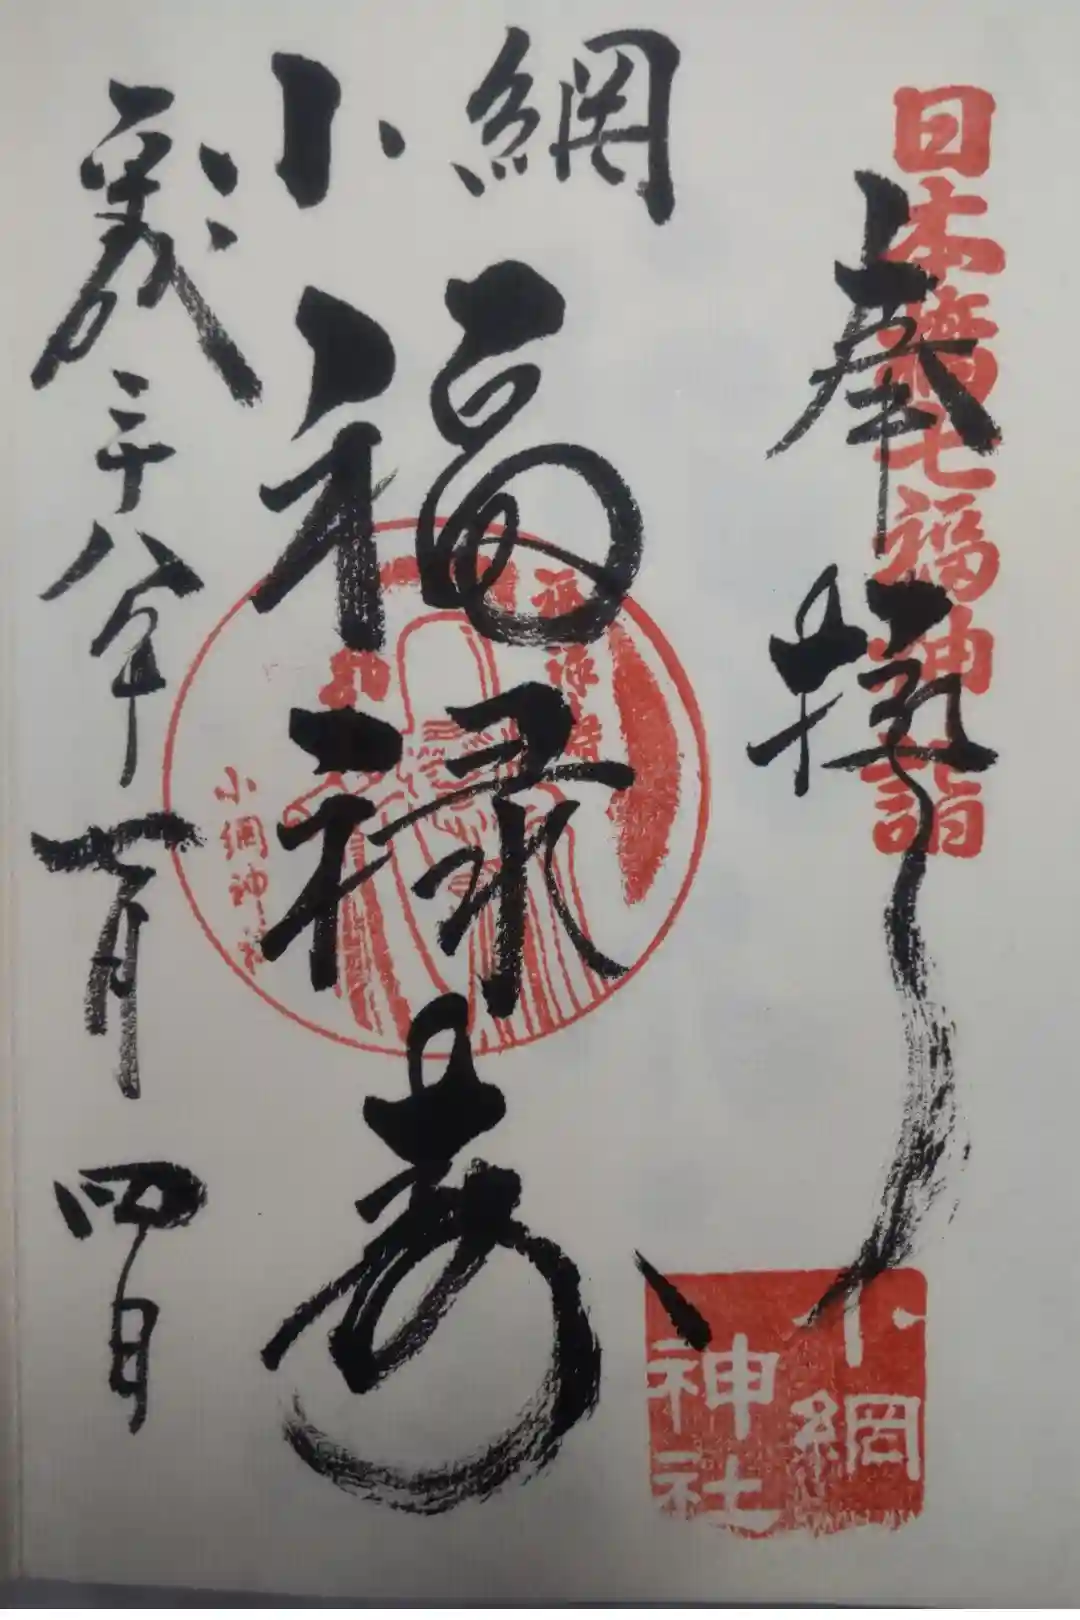 日本橋七福神詣
奉拝
小網
福禄寿
平成二十八年七月四日
福禄寿
小網神社
小網神社